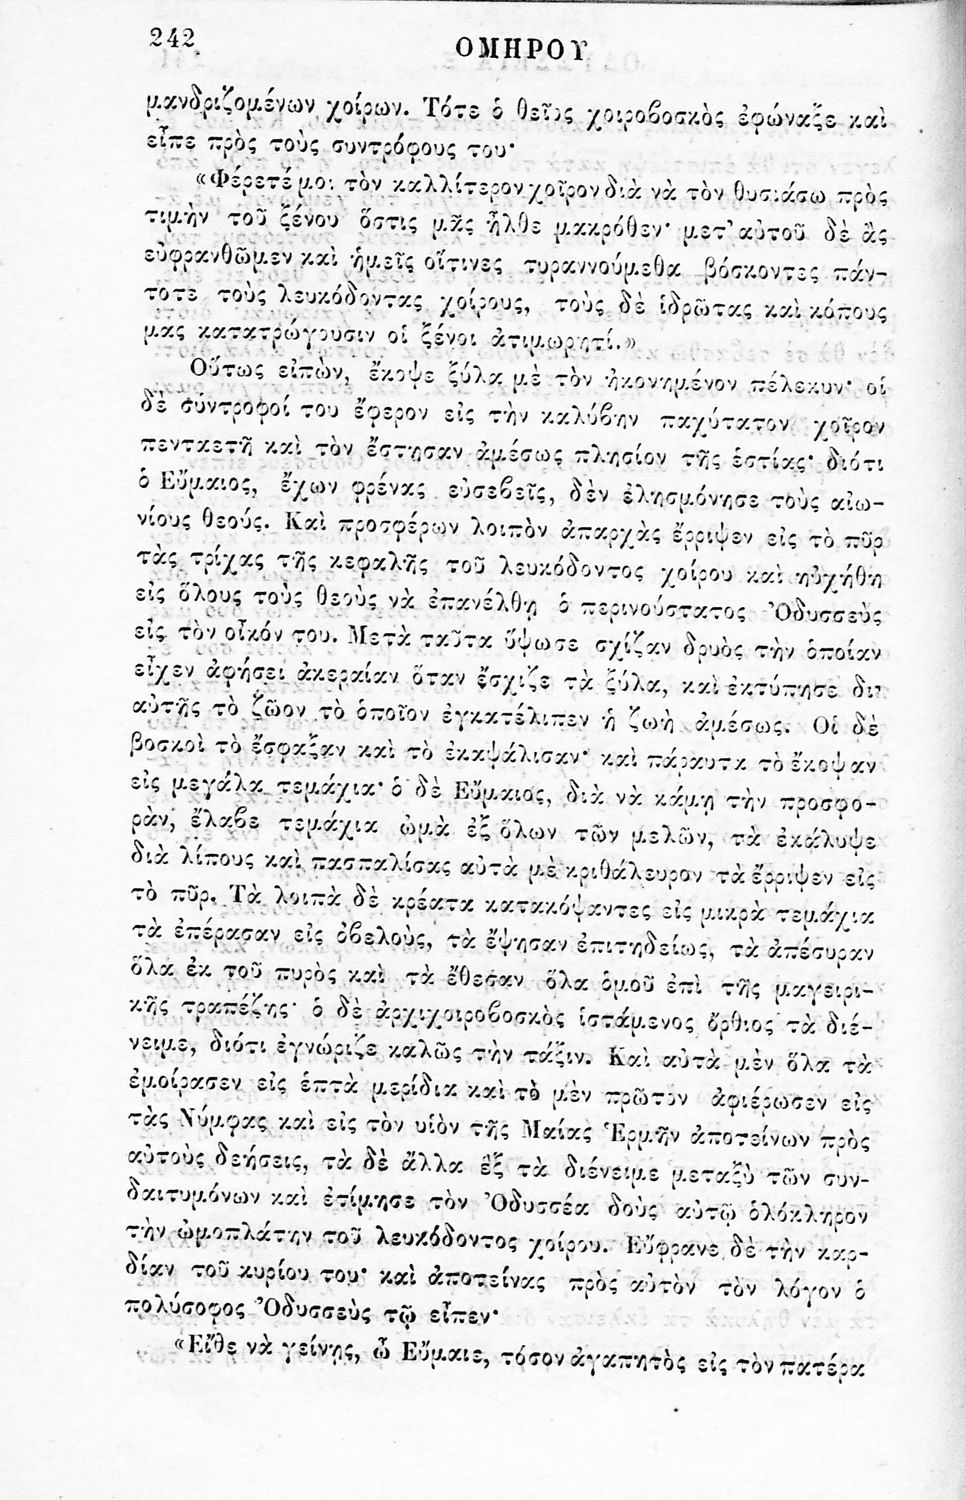 242
ΟΜΗΡΟΥ
μανδριζομένων χοίρων. Τότε ὁ θεῖος χοιροβοσκὸς ἐφώναξε καὶ
εἶπε πρὸς τοὺς συντρόφους του·
«Φέρετέ μοι τὸν καλλίτερον χοῖρον διὰ νὰ τὸν θυσιάσω πρὸς
τιμὴν τοῦ ξένου ὅστις μᾶς ἦλθε μακρόθεν· μετ' αὐτοῦ δὲ ἂς
εὐφρανθῶμεν καὶ ἡμεῖς οἵτινες τυραννούμεθα βόσκοντες πάν-
τοτε τοὺς λευκόδοντας χοίρους, τοὺς δὲ ἱδρῶτας καὶ κόπους
μας κατατρώγουσιν οἱ ξένοι ἀτιμωρητί.»
Οὕτως εἰπὼν, ἔκοψε ξύλα μὲ τὸν ἠκονημένον πέλεκυν· οἱ
δὲ σύντροφοί του ἔφερον εἰς τὴν καλύβην παχύτατον χοῖρον
πενταετῆ καὶ τὸν ἔστησαν ἀμέσως πλησίον τῆς ἑστίας· διότι
ὁ Εὔμαιος, ἔχων φρένας εὐσεβεῖς, δὲν ἐλησμόνησε τοὺς αἰω-
νίους θεούς. Καὶ προσφέρων λοιπὸν ἀπαρχὰς ἔρριψεν εἰς τὸ πῦρ
τὰς τρίχας τῆς κεφαλῆς τοῦ λευκόδοντος χοίρου καὶ ηὐχήθη
εἰς ὅλους τοὺς θεοὺς νὰ ἐπανέλθῃ ὁ περινούστατος Ὀδυσσεὺς
εἰς τὸν οἶκόν του. Μετὰ ταῦτα ὕψωσε σχίζαν δρυὸς τὴν ὁποίαν
εἶχεν ἀφήσει ἀκεραίαν ὅταν ἔσχιζε τὰ ξύλα, καὶ ἐκτύπησε δι'
αὐτῆς τὸ ζῶον τὸ ὁποῖον ἐγκατέλιπεν ἡ ζωὴ ἀμέσως. Οἱ δὲ
βοσκοὶ τὸ ἔσφαξαν καὶ τὸ ἐκαψάλισαν· καὶ πάραυτα τὸ ἔκοψαν
εἰς μεγάλα τεμάχια· ὁ δὲ Εὔμαιος, διὰ νὰ κάμῃ τὴν προσφο-
ρὰν, ἔλαβε τεμάχια ὠμὰ ἐξ ὅλων τῶν μελῶν, τὰ ἐκάλυψε
διὰ λίπους καὶ πασπαλίσας αὐτὰ μὲ κριθάλευρον τὰ ἔρριψεν εἰς
τὸ πῦρ. Τὰ λοιπὰ δὲ κρέατα κατακόψαντες εἰς μικρὰ τεμάχια
τὰ ἐπέρασαν εἰς ὀβελοὺς, τὰ ἔψησαν ἐπιτηδείως, τὰ ἀπέσυραν
ὅλα ἐκ τοῦ πυρὸς καὶ τὰ ἔθεσαν ὅλα ὁμοῦ ἐπὶ τῆς μαγειρι-
κῆς τραπέζης· ὁ δὲ ἀρχιχοιροβοσκὸς ἱστάμενος ὄρθιος τὰ διέ-
νειμε, διότι ἐγνώριζε καλῶς τὴν τάξιν. Καὶ αὐτὰ μὲν ὅλα τὰ
ἐμοίρασεν εἰς ἑπτὰ μερίδια καὶ τὸ μὲν πρῶτον ἀφιέρωσεν εἰς
τὰς Νύμφας καὶ εἰς τὸν υἱὸν τῆς Μαίας Ἑρμῆν ἀποτείνων πρὸς
αὐτοὺς δεήσεις, τὰ δὲ ἄλλα ἓξ τὰ διένειμε μεταξὺ τῶν συν-
δαιτυμόνων καὶ ἐτίμησε τὸν Ὀδυσσέα δοὺς αὐτῷ ὁλόκληρον
τὴν ὠμοπλάτην τοῦ λευκόδοντος χοίρου. Εὔφρανε δὲ τὴν καρ-
δίαν τοῦ κυρίου του· καὶ ἀποτείνας πρὸς αὐτὸν τὸν λόγον ὁ
πολύσοφος Ὀδυσσεὺς τῷ εἶπεν·
«Εἴθε νὰ γείνῃς, ὦ Εὔμαιε, τόσον ἀγαπητὸς εἰς τὸν πατέρα